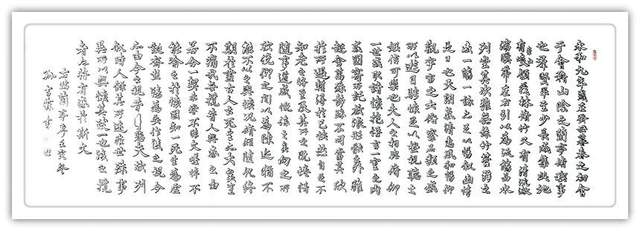 永和九年歲在癸丑暮春之初會
于會稽山陰之蘭亭脩稧事
也羣賢畢至少長咸集此地
有崇山峻領茂林脩竹又有清流激
湍暎帶左右引以為流觴曲水
列坐其次雖無絲竹管弦之
盛一觴一詠亦足以暢敘幽情
是日也天朗氣清惠風和暢仰
觀宇宙之大俯察品類之盛
所以遊目騁懷足以極視聽之
娛信可樂也夫人之相與俯仰
一世或取諸懷抱悟言一室之內
或因寄所託放浪形骸之外雖
趣舍萬殊靜躁不同當其欣
於所遇暫得於己怏然自足不
知老之將至及其所之既惓情
隨事遷感慨係之矣向之所
欣俛仰之間以為陳迹猶不
能不以之興懷況脩短隨化終
期於盡古人云死生亦大矣豈
不痛哉每攬昔人興感之由
若合一契未嘗不臨文嗟悼不
能喻之於懷固知一死生為虛
誕齊彭殤為妄作後之視今
亦由今之視昔悲夫故列
敘時人錄其所述雖世殊事
異所以興懷其致一也後之攬
者亦將有感於斯文
右臨蘭亭序